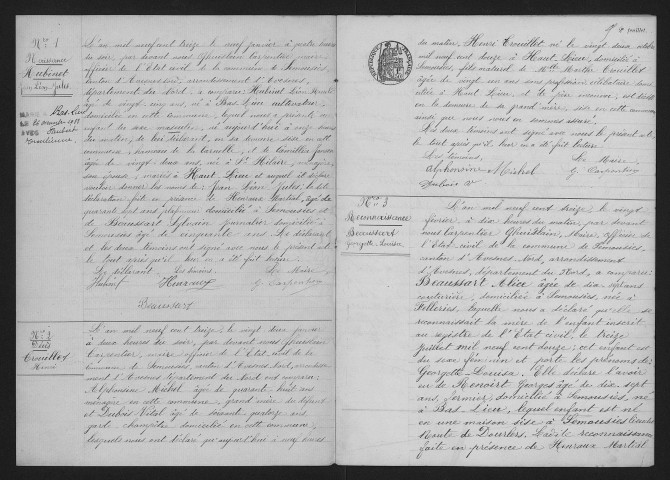 No 1
Naissance
Hubinet
Jean Léon Jules
L'an mil neuf cent treize le neuf janvier à quatre heures
du soir, par devant nous Ghuislain Carpentier, maire
officier de l'Etat civil de la commune de Semousies,
canton d'Avesnes, arrondissement d'Avesnes,
département du Nord, a comparu Hubinet Léon
âgé de vingt cinq ans, né à Bas Lieu cultivateur
domicilié en cette commune, lequel nous a présenté un
enfant du sexe masculin, né aujourd'hui à onze heures
du matin, de lui déclarant, en sa demeure, sise en cette
commune
âgée de vingt deux ans, née à St Hilaire, ménagère,
son épouse, mariés à Haut Lieu et auquel il déclare
vouloir donner les noms de Jean Léon Jules; la dite
déclaration faite en présence de Henraux Martial, âgé de
quarante ans, domicilié à Semousies, et
de Beaussart Sylvain journalier domicilié à
Semousies âgé de cinquante ans. Le déclarant
et les deux témoins ont signé avec nous le présent acte
le tout après qu'il leur en a été fait lecture.
Le déclarant Les témoins. Le Maire
Hubinet Henraux G Carpentier
Beaussart
No 2
Décès
Trouillet
Henri
L'an mil neuf cent treize, le vingt deux janvier
à deux heures du soir, par devant nous Ghuislain
Carpentier, maire officier de l'Etat civil de la
commune de Semousies, canton d'Avesnes Nord, arrondissement
d'Avesnes département du Nord ont comparu
Alphonsine Michel âgée de quarante huit ans
ménagère en cette commune, grand'mère du défunt
et Dubois Vital âgé de soixante quatorze ans
garde champêtre domicilié en cette commune,
lesquels nous ont déclaré qu'aujourd'hui à onze heures
du matin, Henri Trouillet né le vingt deux octobre
mil neuf cent douze à Haut Lieu, domicilié à
Semousies, fils naturel de Marthe Trouillet
âgée de vingt un ans profession célibataire domiciliée
à Haut Lieu, est décédé
en la demeure de sa grand'mère, sise en cette commune
ainsi que nous nous en sommes assuré.
Les deux témoins ont signé avec nous le présent acte
le tout après qu'il leur en a été fait lecture.
Les témoins, Le Maire
Alphonsine Michel G Carpentier
Dubois V
No 3
Reconnaissance
Beaussart
Georgette Louisa
L'an mil neuf cent treize, le vingt
février, à dix heures du matin, par devant
nous Carpentier Ghuislain, Maire, officier de
l'Etat civil de la commune de Semousies,
canton d'Avesnes Nord, arrondissement
d'Avesnes, département du Nord, a comparu:
Beaussart Alice âgée de dix sept ans
couturière, domiciliée à Semousies, née à
Felleries, laquelle nous a déclaré qu'elle se
reconnaissait la mère de l'enfant inscrit
au registre de l'Etat civil, le treize
juillet mil neuf cent douze, cet enfant est
du sexe féminin et porte les prénoms de:
Georgette-Louisa. Elle déclare l'avoir
eu de Renoirt Georges âgé de dix sept
ans, fermier, domicilié à Semousies, né
à Bas-Lieu, lequel enfant est né
en une maison sise à Semousies
Route de Dourlers. Ladite reconnaissance
faite en présence de Henraux Martial